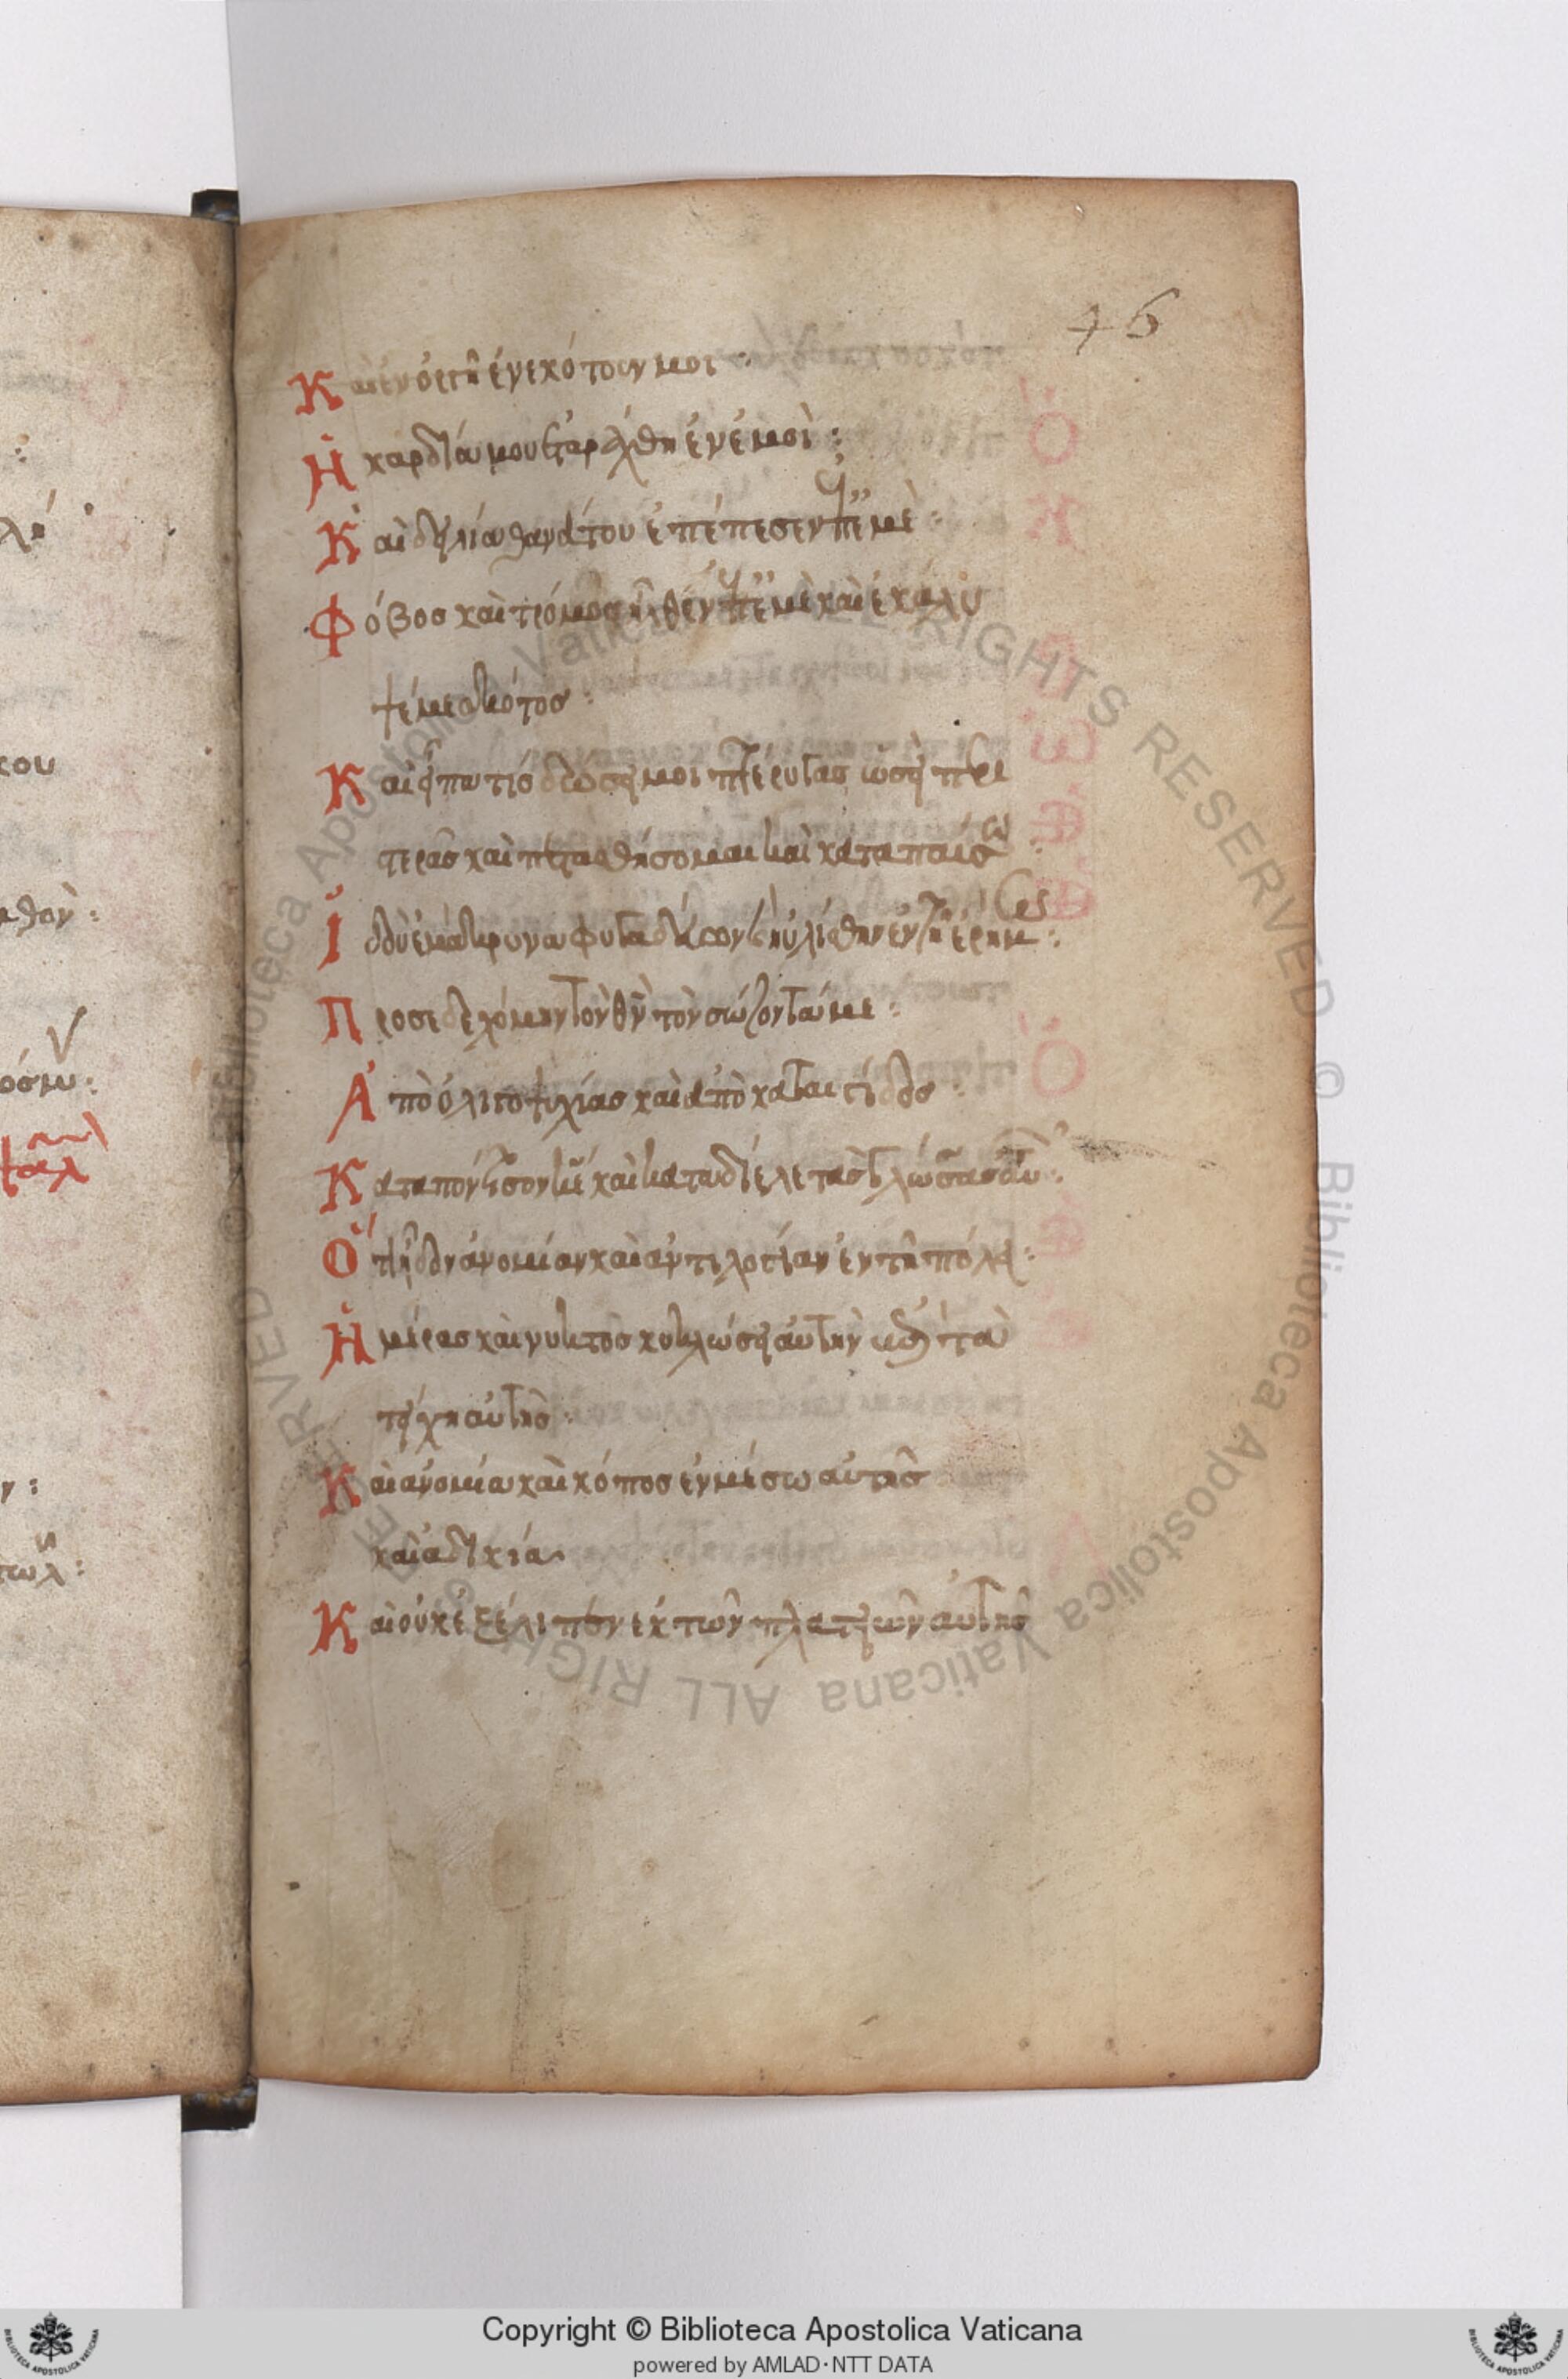 46
Καὶ ἐν ὀργῆ ἐνεκότουν μοι :
Ἡ καρδία μου ἐταράχθη ἐν ἐμοὶ :
Καὶ δειλία θανάτου ἐπέπεσεν ἐπ' ἐμὲ :
Φόβος καὶ τρόμος ἦλθεν ἐπ' ἐμὲ καὶ ἐκάλυ
ψέ με σκότος :
Καὶ εἶπω τίς δώσει μοι πτέρυγας ὡσεὶ περι
στερᾶς καὶ πετασθήσομαι καὶ καταπαύσω
Ἰδοὺ ἐμάκρυνα φυγαδεύων καὶ ηὐλίσθην ἐν τῆ ἐρήμω :
Προσεδεχόμην τὸν θν τὸν σώζοντά με :
Ἀπὸ ὀλιγοψυχίας καὶ ἀπὸ καταιγίδος
Καταπόντισον κε καὶ καταδίελε τὰς γλώσσας αὐτῶν :
Ὅτι εἶδον ἀνομίαν καὶ ἀντιλογίαν ἐν τῆ πόλει :
Ἡμέρας καὶ νυκτὸς κυκλώσει αὐτὴν ἐπὶ τὰ
τείχη αὐτῆς :
Καὶ ἀνομία καὶ κόπος ἐν μέσω αὐτῆς
καὶ ἀδικία
Καὶ οὐκ ἐξέλιπεν ἐκ τῶν πλατειῶν αὐτῆς
κου
Copyright © Biblioteca Apostolica Vaticana
powered by AMLAD·NTT DATA